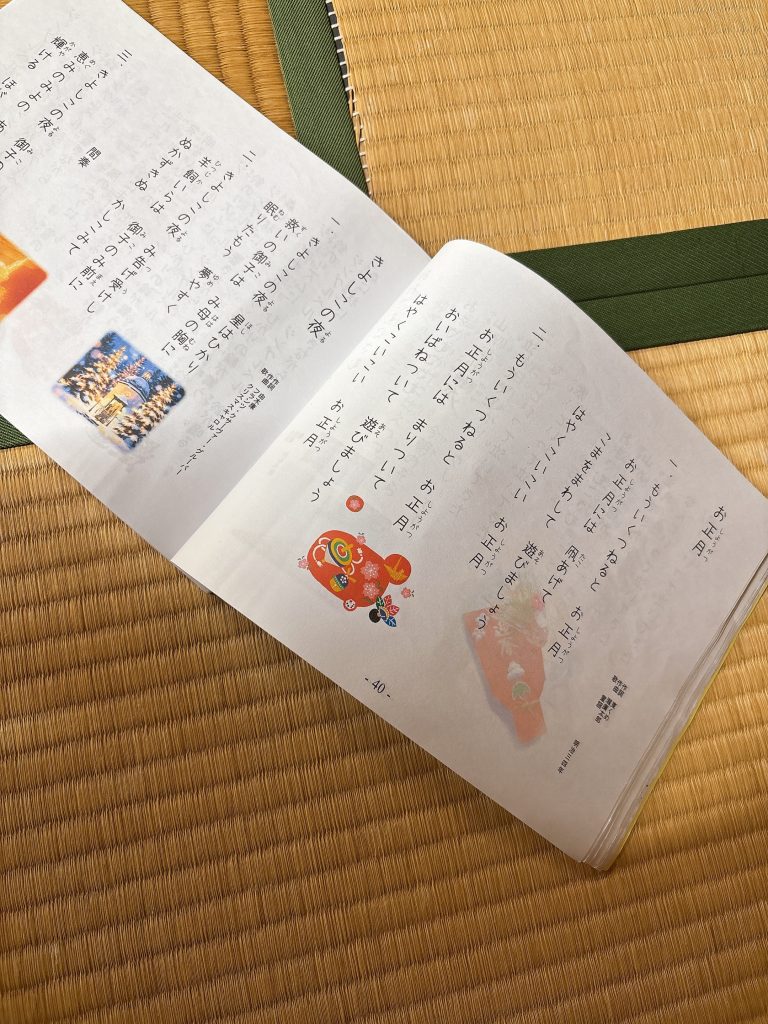 お正月
作詞 東くめ
作曲 瀧廉太郎
明治三四年
一．もういくつねると お正月
お正月には 凧あげて
こまをまわして 遊びましょう
はやくこいこい お正月
二．もういくつねると お正月
お正月には まりついて
おいばねついて 遊びましょう
はやくこいこい お正月
- 40 -
きよしこの夜
クリスマスキャロル
一．きよしこの夜 星はひかり
救いの御子は み母の胸に
眠りたもう 夢やすく
二．きよしこの夜 み告げ受けし
羊飼いらは 御子のみ前に
ぬかずきぬ かしこみて
間奏
三．きよしこの夜 御子の
恵みのみよの あ
輝ける ほが